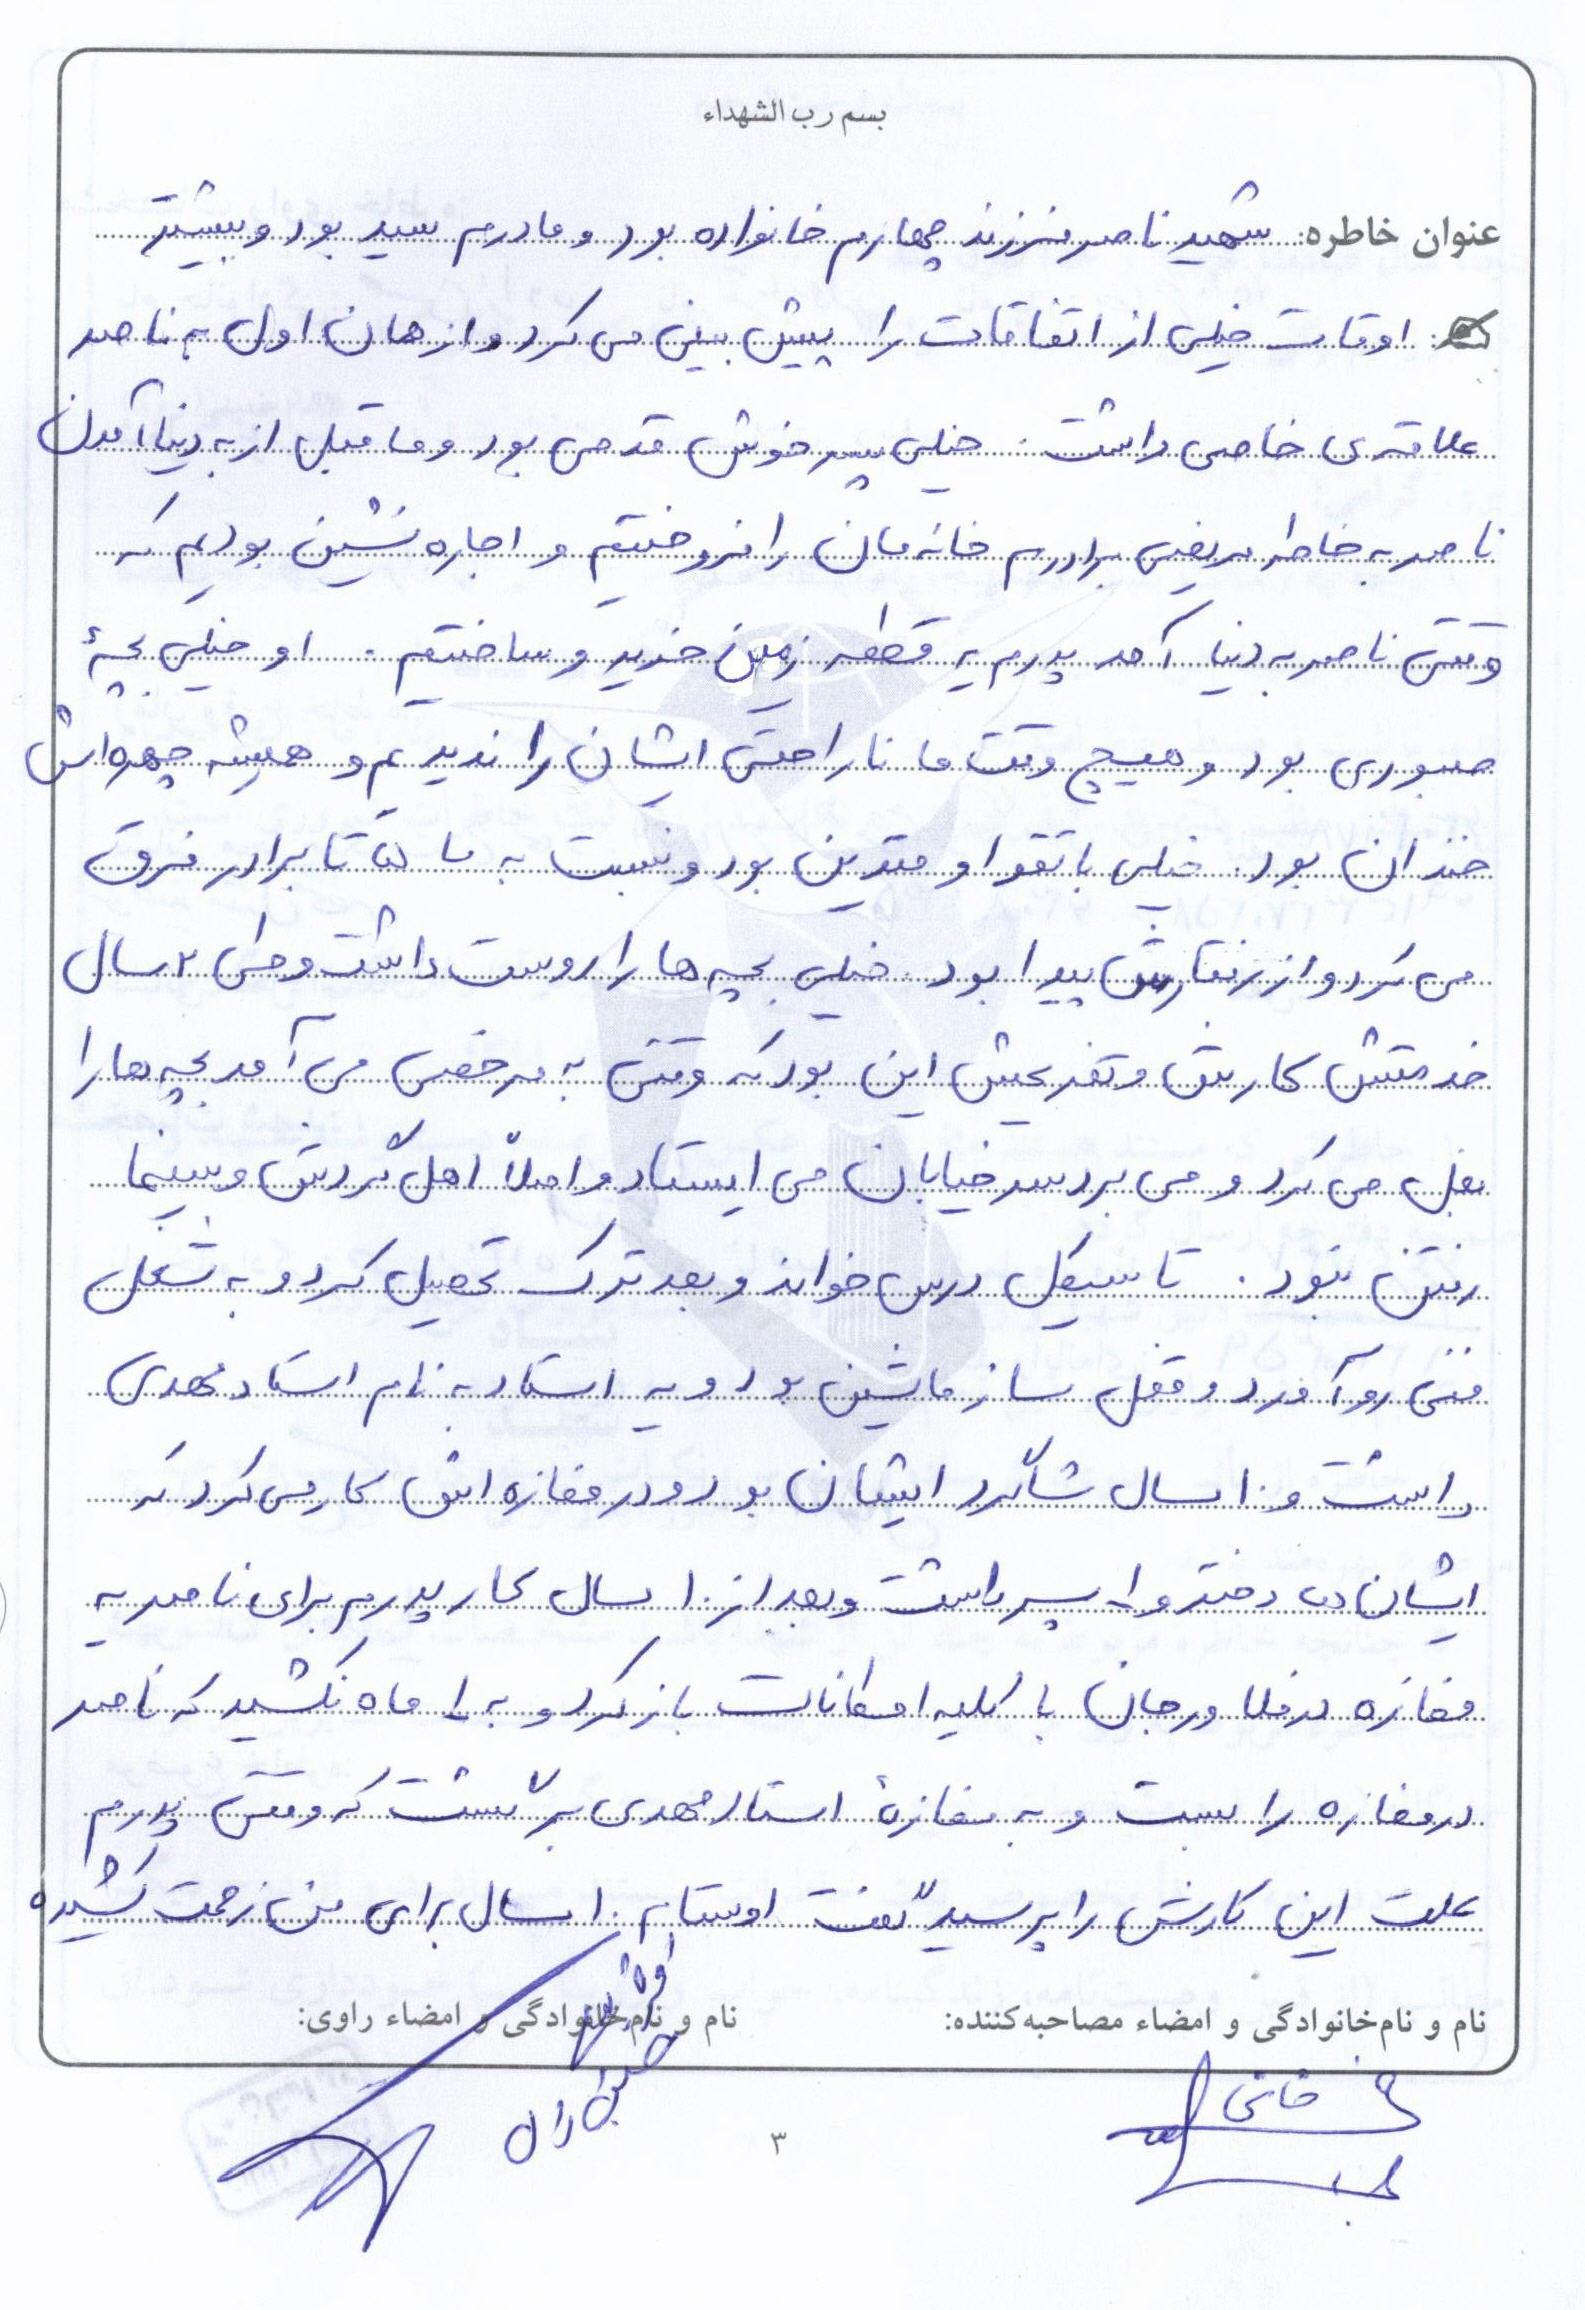 بسم رب الشهداء
عنوان خاطره: شهید ناصر فرزند چهارم خانواده بود و مادرم سید بود و بیشتر
اوقات خیلی از اتفاقات را پیش بینی می کرد و از همان اول به ناصر
علاقه‌ی خاصی داشت. خیلی پسر خوش قدمی بود و ما قبل از به دنیا آمدن
ناصر به خاطر مریضی برادرم خانه مان را فروختیم و اجاره نشین بودیم که
وقتی ناصر به دنیا آمد پدرم یه قطعه زمین خرید و ساختیم. او خیلی بچۀ
صبوری بود و هیچ وقت ما ناراحتی ایشان را ندیدیم و همیشه چهره‌اش
خندان بود. خیلی با تقوا و متدین بود و نسبت به ما ۵ تا برادر فرق
می کرد و از رفتارش پیدا بود. خیلی بچه ها را دوست داشت و طی ۲ سال
خدمتش کارش و تفریحش این بود که وقتی به مرخصی می آمد بچه ها را
بغل می کرد و می برد سر خیابان می ایستاد و اصلاً اهل گردش و سینما
رفتن نبود. تا سیکل درس خواند و بعد ترک تحصیل کرد و به شغل
فنی رو آورد و قفل ساز ماشین بود و یه استاد به نام استاد مهدی
داشت و ۱۰ سال شاگرد ایشان بود و در مغازه اش کار می کرد که
ایشان دختر و ۱ پسر داشت و بعد از ۱۰ سال کار پدرم برای ناصر یه
مغازه در فلاورجان با کلیه امکانات باز کرد و به ۱ ماه نکشید که ناصر
در مغازه را بست و به مغازۀ استاد مهدی برگشت که وقتی پدرم
علت این کارش را پرسید گفت اوستام ۱۰ سال برای من زحمت کشیده
نام و نام‌خانوادگی و امضاء مصاحبه‌کننده:
نام و نام‌خانوادگی و امضاء راوی:
خانی
۳